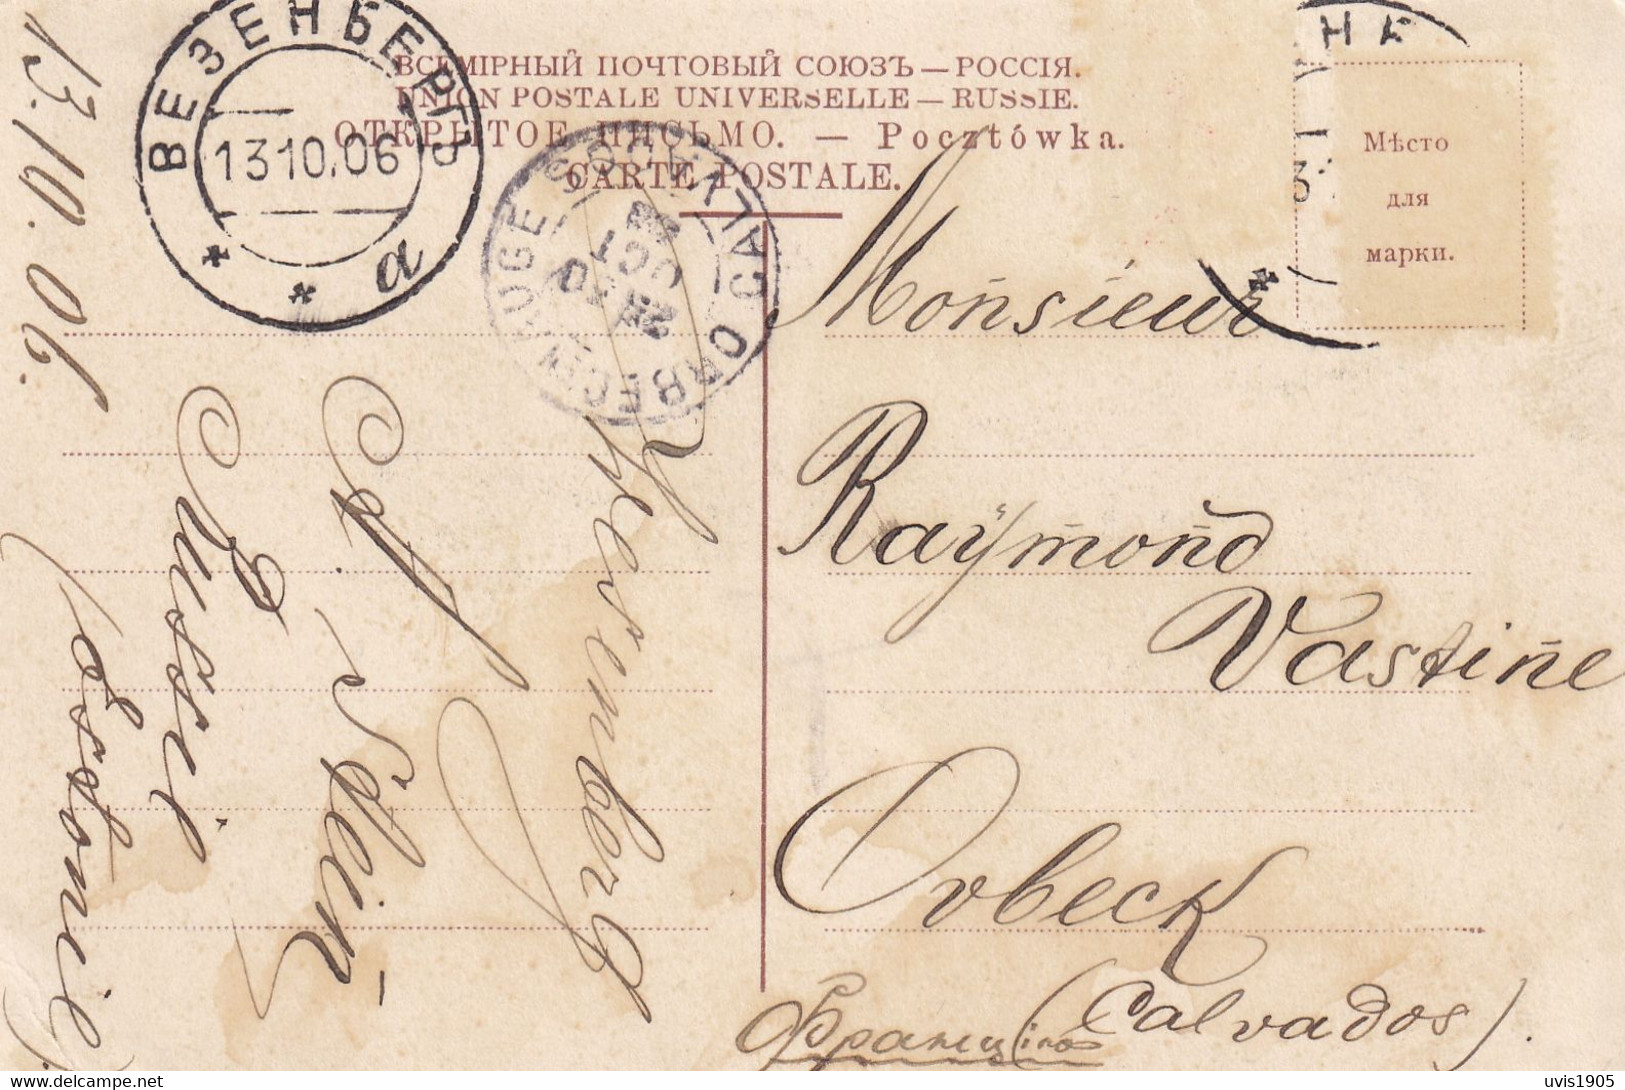 ВСЕМІРНЫЙ ПОЧТОВЫЙ СОЮЗЪ — РОССІЯ.
UNION POSTALE UNIVERSELLE — RUSSIE.
ОТКРЫТОЕ ПИСЬМО. — Pocztówka.
CARTE POSTALE.
ВЕЗЕНБЕРГЪ
13 10.06
a
ORBEC EN AUGE CALVADOS
OCT
Мѣсто
для
марки.
13.10.06.
Monsieur
Raymond
Vastine
Orbeck
(Calvados).
Францію
Wesenberg
A. Klein
Russie
(Estonie)
delcampe.net
uvis1905